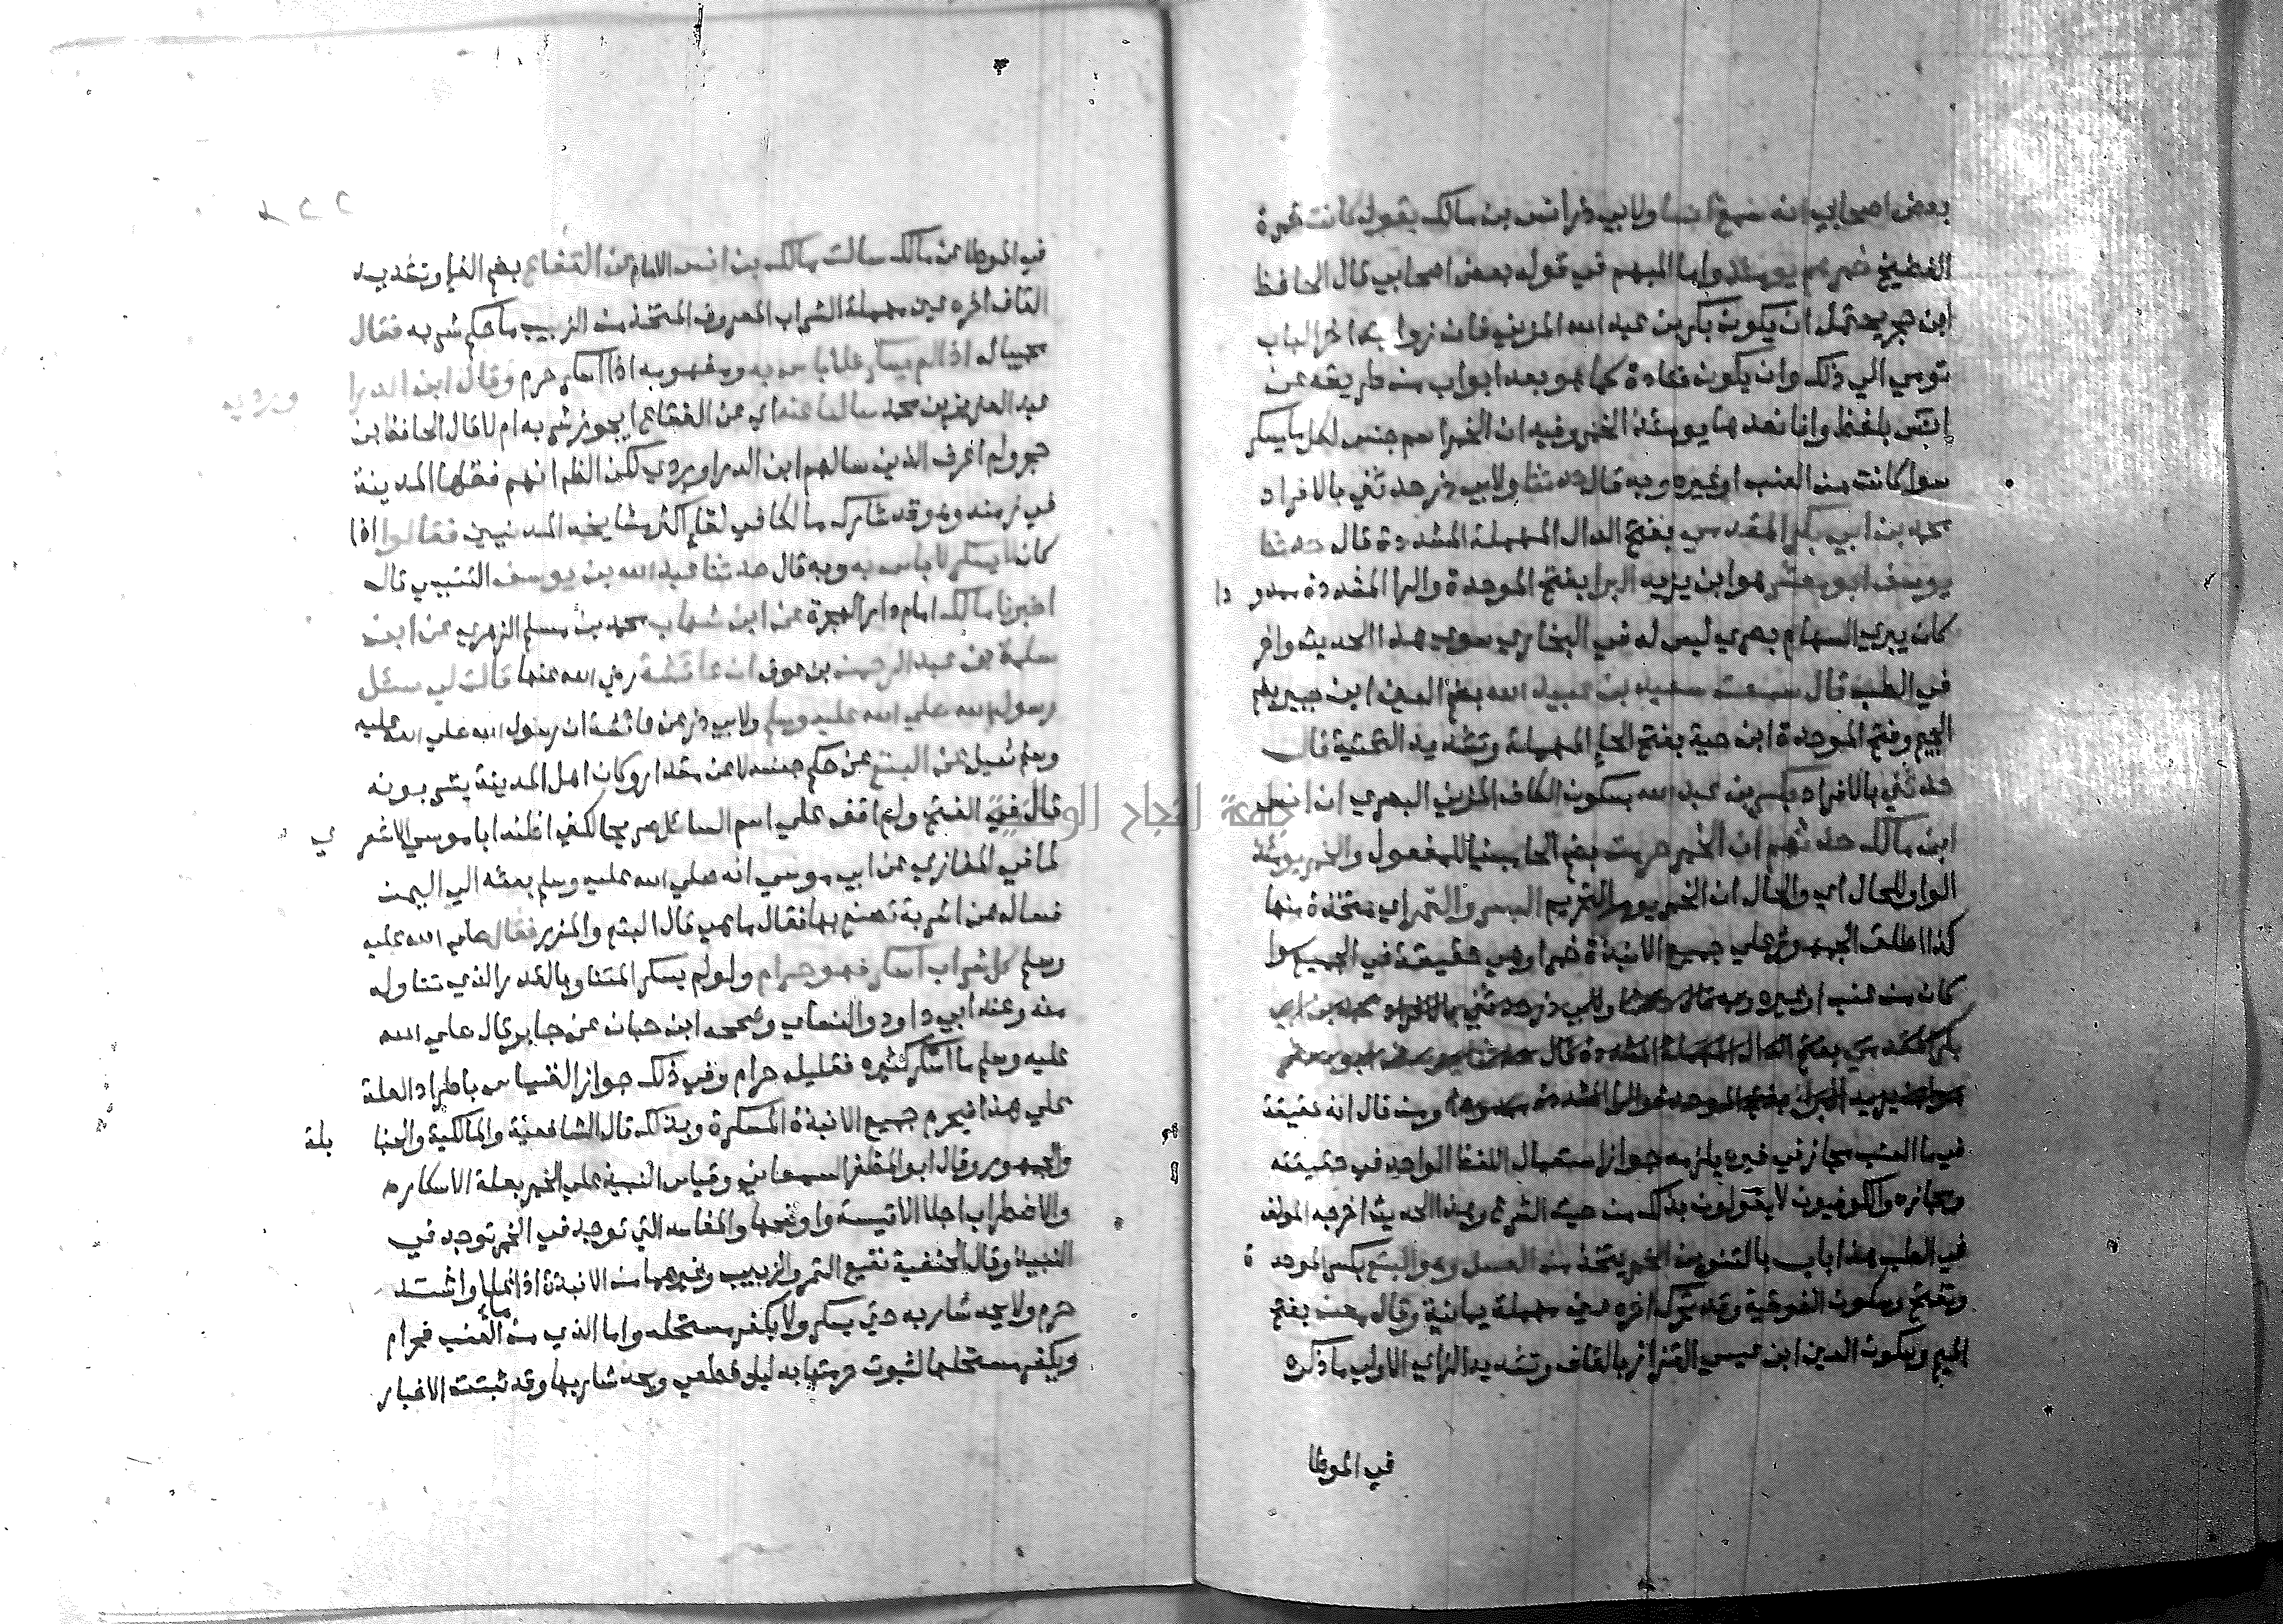 بعض اصحابي انه سمع انسا ولابي ذر انس بن مالك يقول كانت خمرة
الفضيخ خبرهم يومئذ واما المبهم في قوله بعض اصحابي قال الحافظ
ابن حجر يحتمل ان يكون بكر بن عبد الله المزني فان روايته اخر الباب
تومي الي ذلك وان يكون قتادة كما هو بعد ابواب من طريقه عن
انس بلفظ وانا نعدها يومئذ الخمر وفيه ان الخمر اسم جنس لكل ما يسكر
سوا كانت من العنب او غيره وبه قال حدثنا ولابي ذر حدثني بالافراد
محمد بن ابي بكر المقدمي بفتح الدال المهملة المشددة قال حدثنا
يوسف ابو معشر هو ابن يزيد البرا بفتح الموحدة والرا المشددة ممدو دا
كان يبري السهام بصري ليس له في البخاري سوي هذا الحديث واخر
في الطب قال سمعت سعيد بن عبيد الله بضم العين ابن جبير بضم
الجيم وفتح الموحدة ابن حية بفتح الحا المهملة وتشديد التحتية قال
حدثني بالافراد بكر بن عبد الله بسكون الكاف المزني البصري ان انس
ابن مالك حدثهم ان الخمر حرمت بضم الحا مبنيا للمفعول والخمر يومئذ
الواو للحال اي والحال ان الخمر يوم التحريم البسر والتمر اي متخذة منها
كذا اطلق الجمهور علي جميع الانبذة خمرا وهي حقيقة في الجميع سوا
كان من عنب او غيره وبه قال حدثنا ولابي ذر حدثني بالافراد محمد بن ابي
بكر المقدمي بفتح الدال المهملة المشددة قال حدثنا يوسف ابو معشر
هو ابن يزيد البرا بفتح الموحدة والرا المشددة ممدودا ومن قال انه حقيقة
في ما العنب مجاز في غيره يلزمه جواز استعمال اللفظ الواحد في حقيقته
ومجازه والكوفيون لا يقولون بذلك من حيث الشرع وهذا الحديث اخرجه المولف
في الطب هذا باب بالتنوين الخمر يتخذ من العسل وهو البتع بكسر الموحد ة
وتفتح وسكون الفوقية وقد تحرك اخره عين مهملة يمانية وقال معن بفتح
الميم وسكون العين ابن عيسي القزاز بالقاف وتشديد الزاي الاولي ما ذكره
في الموطا
في الموطا عن مالك سالت مالك بن انس الامام عن الفقاع بضم الفا وتشديد
القاف اخره عين مهملة الشراب المعروف المتخذ من الزبيب ما حكم شربه فقال
مجيبا له اذا لم يسكر فلا باس به ومفهومه اذا اسكر حرم وقال ابن الدرا وردي
عبد العزيز بن محمد سالنا عنه اي عن الفقاع ايجوز شربه ام لا قال الحافظ ابن
حجر ولم اعرف الذين سالهم ابن الدراوردي لكن الظم انهم فقها المدينة
في زمنه وهو قد شارك مالكا في لقاء اكثر مشايخه المدنيين فقالوا اذا
كان لا يسكر لا باس به وبه قال حدثنا عبد الله بن يوسف التنيسي قال
اخبرنا مالك امام دار الهجرة عن ابن شهاب محمد بن مسلم الزهري عن ابي
سلمة بن عبد الرحمن بن عوف ان عائشة رضي الله عنها قالت لي سئل
رسول الله صلي الله عليه وسلم ولابي ذر عن عائشة ان رسول الله صلي الله عليه
وسلم سيل عن البتع عن حكم جنسه لا عن مقداره وكان اهل المدينة يشربونه
قال في الفتح ولم اقف علي اسم السائل صريحا لكني اظنه ابا موسي الاشعر ي
لما في المغازي عن ابي موسي انه صلي الله عليه وسلم بعثه الي اليمن
فساله عن اشربة تصنع بها فقال ما هي قال البتع والمزر فقال صلي الله عليه
وسلم كل شراب اسكر فهو حرام ولو لم يسكر المتناول بالقدر الذي تناوله
منه وعند ابي داود والنساي وصححه ابن حبان عن جابر قال صلي الله
عليه وسلم ما اسكر كثيره فقليله حرام وفي ذلك جواز القياس باطراد العلة
علي هذا فيحرم جميع الانبذة المسكرة وبذلك قال الشافعية والمالكية والحنا بلة
والجمهور وقال ابو المظفر السمعاني وقياس النبيذ علي الخمر بعلة الاسكار
والاضطراب اجلا الاقيسة واوضحها والمفاسد التي توجد في الخمر توجد في
النبيذ وقال الحنفية نقيع التمر والزبيب وغيرهما من الانبذة اذا غلا واشتد
حرم ولا يحد شاربه حتي يسكر ولا يكفر مستحله واما الذي من ما العنب فحرام
ويكفر مستحلها لثبوت حرمتها بدليل قطعي ويحد شاربها وقد ثبتت الاخبار
جامعة النجاح الوطنية